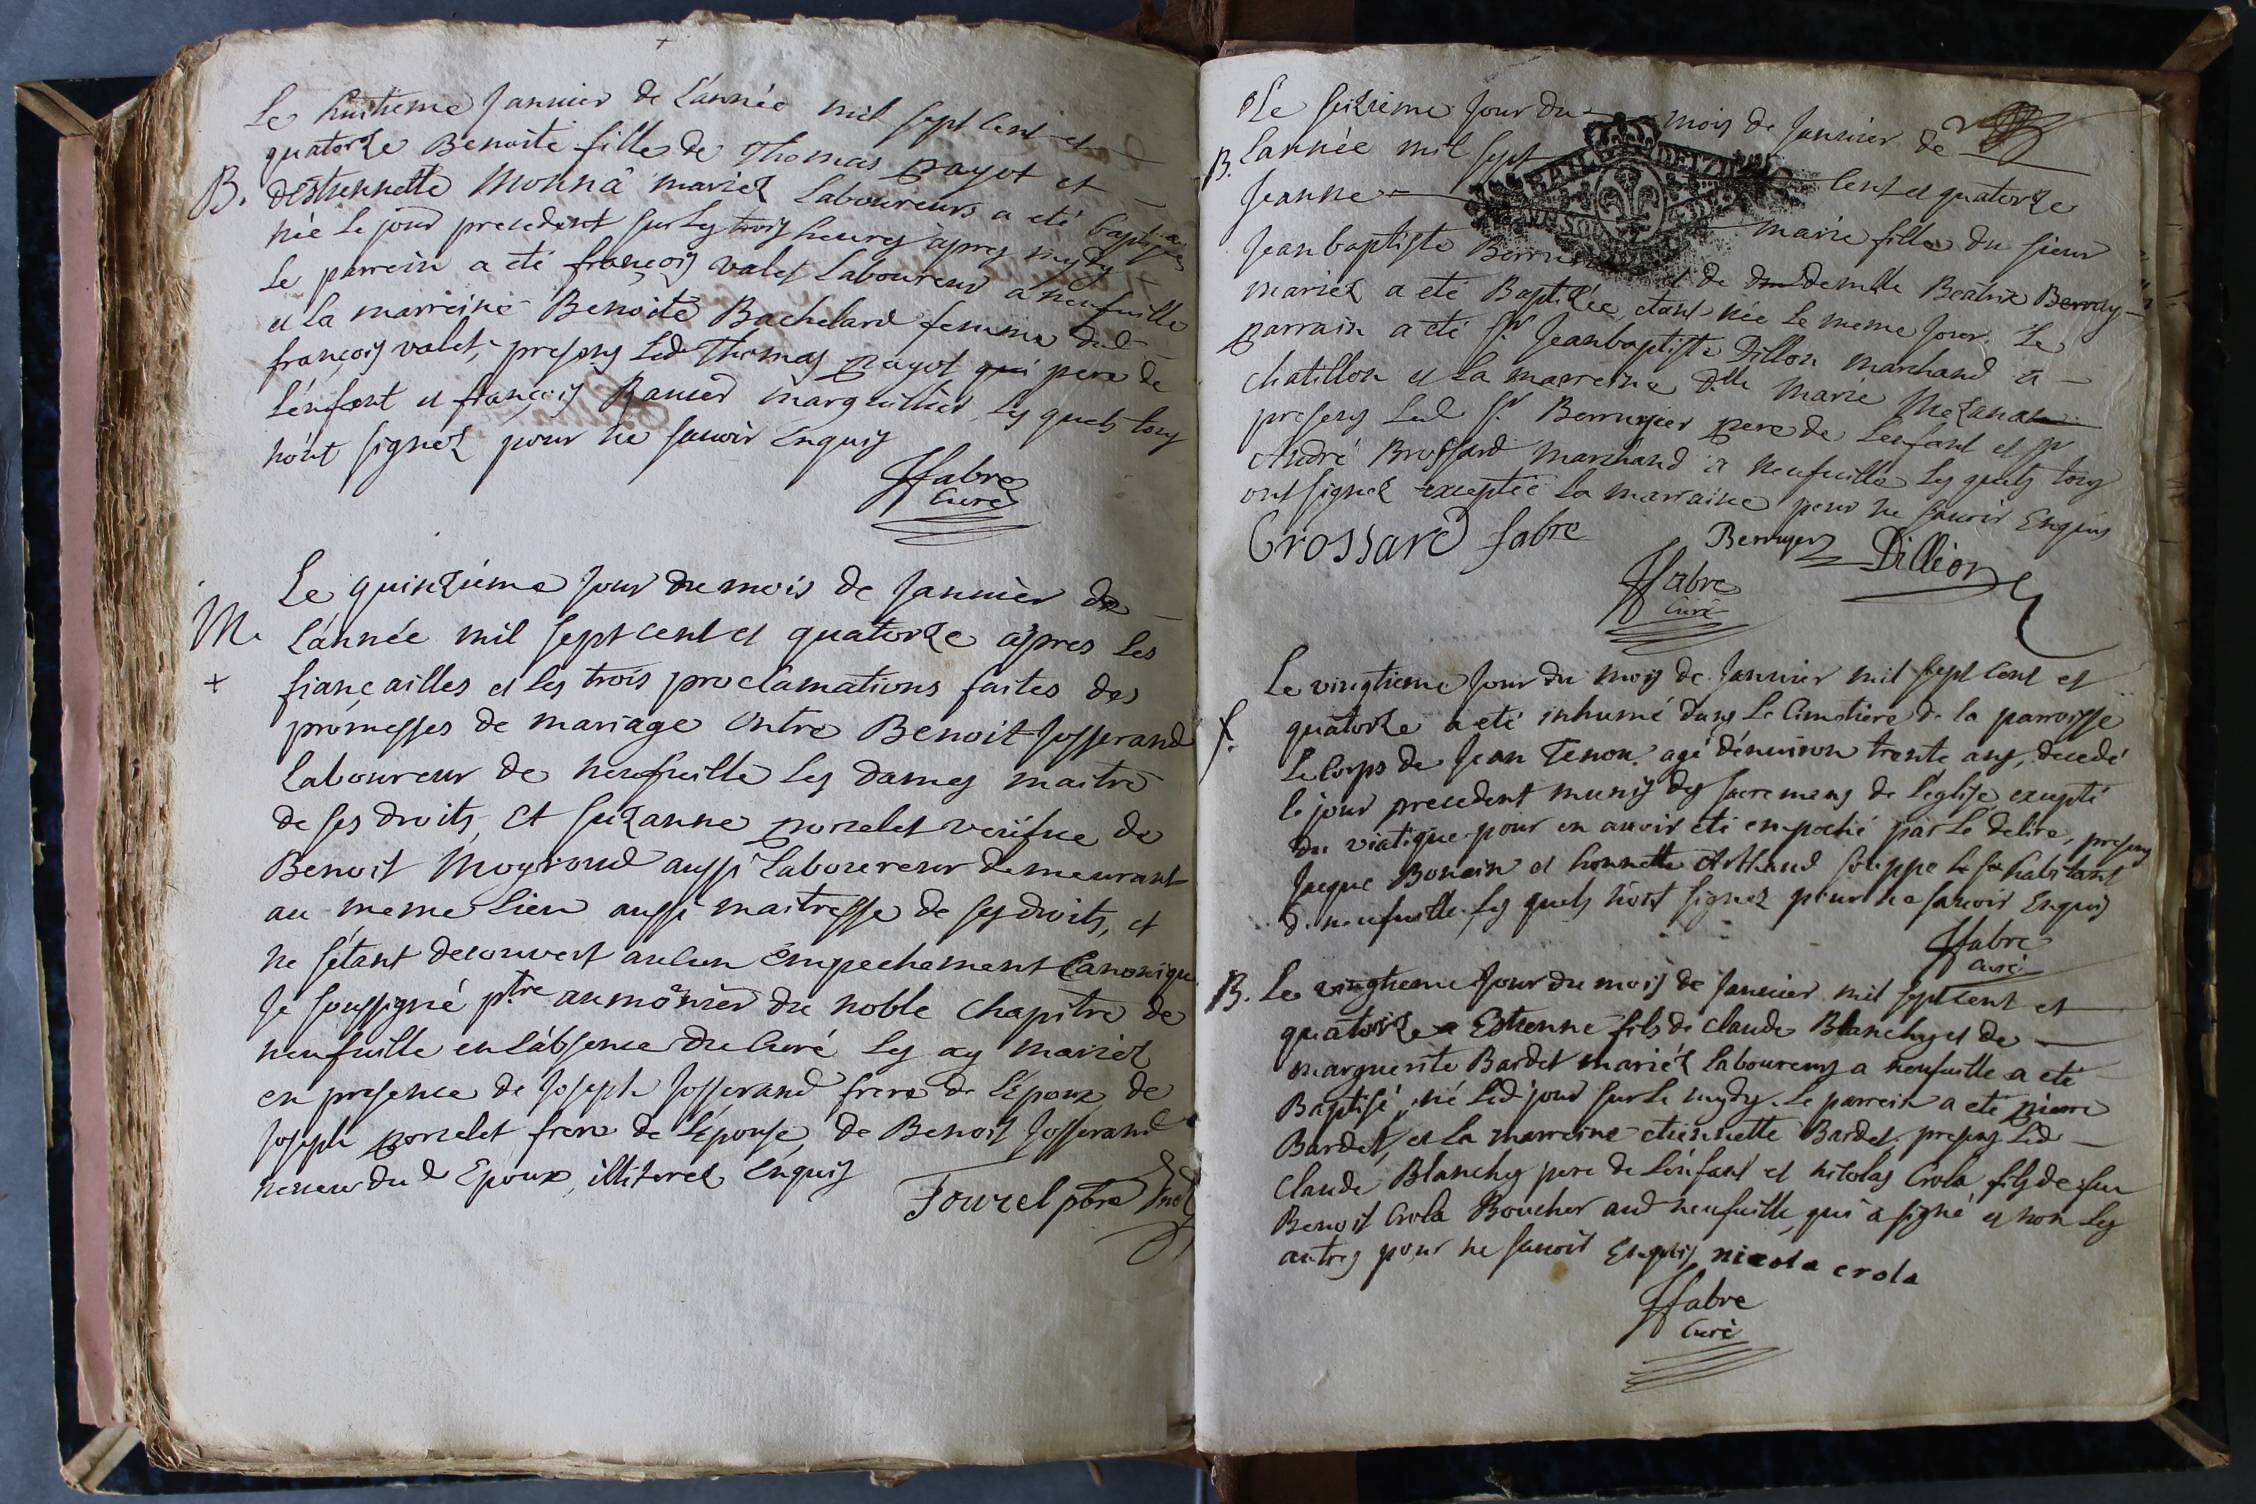 Le huitieme Janvier de L'année mil sept cent et
quatorze Benoite fille de Thomas payot et
B. d'Estiennette Monnâ mariez Laboureurs a eté baptisée
née le jour precedent sur les trois heures apres mydy
Le parrein a eté françois valet Laboureur a neufuille
et la marreine Benoite Bachelard femme dud
françois valet, presens Led Thomas payot qui pere de
L'enfant et françois marguillier les quels tous
n'ont signez pour ne sauoir Enquis
ffabre
Curé
Le quinziéme Jour du mois de Januier de
M. L'année mil sept cent et quatorze apres les
+ fiançailles et les trois proclamations faites des
promesses de mariage Entre Benoit Josserand
Laboureur de neufuille les dames maitre
de ses droits, Et Suzanne porcelet veüfue de
Benoit Moyroud aussi Laboureur demeurant
au meme Lieu aussi maitresse de ses droits, et
ne s'étant decouvert aucun Empechement Canonique
Je soussigné ptre aumônier du noble Chapitre de
neufuille en L'absence du Curé les ay mariez
en presence de Joseph Josserand frere de L'Epoux, de
Joseph porcelet frere de L'Epouse, de Benoit Josserand
neueu dud Epoux, illiterez Enquis
Fourel ptre
Le seizieme Jour du mois de Januier de
B. L'année mil sept cent et quatorze
Jeanne marie fille du sieur
Jean baptiste et de demlle Beatrix
mariez a eté Baptisée, etant née le meme Jour. Le
parrain a eté Sr Jeanbaptiste Dillon marchand a
chatillon et La marreine dlle Marie
presens Led Sr Berruyer pere de L'enfant et Sr
André Brossard Marchand a neufuille les quels tous
ont signez exceptée La marraine pour ne sauoir Enquis
Brossard fabre Berruyer Dillion
ffabre
Curé
Le vingtieme Jour du mois de Januier mil sept cent et
f. quatorze a eté inhumé dans Le Cimetiere de la parroisse
Le Corps de Jean Tenon agé d'enuiron trente ans, decedé
le jour precedent munis des sacremens de L'eglise excepté
du viatique pour en auoir eté empeché par Le delire, presens
Jacque Bonain et honnette Arthaud habitans
de neufuille les quels n'ont signez pour ne sauoir Enquis
ffabre
Curé
B. Le vingtieme Jour du mois de Januier mil sept cent et
quatorze Estienne fils de Claude Blanchy et de
marguerite Bardet mariéz Laboureurs a neufuille a eté
Baptisé, né Led jour sur Le mydy. Le parrein a eté pierre
Bardet, et La marreine etiennette Bardet. presens Led
Claude Blanchy pere de L'enfant et nicolas Crola fils de feu
Benoit Crola Boucher aud neufuille qui a signé et non les
autres pour ne sauoir Enquis nicola crola
ffabre
Curé